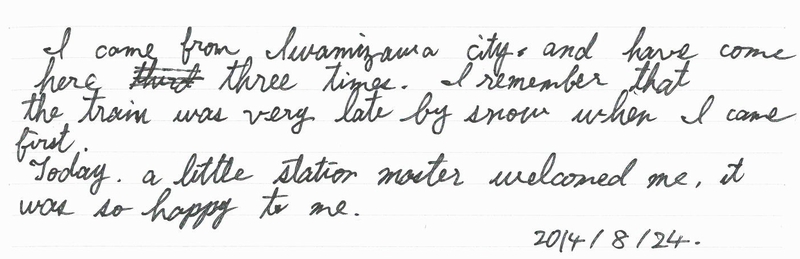 I came from Iwamizawa city. and have come
here third three times. I remember that
the train was very late by snow when I came
first.
Today. a little station master welcomed me, it
was so happy to me.
2014/8/24.